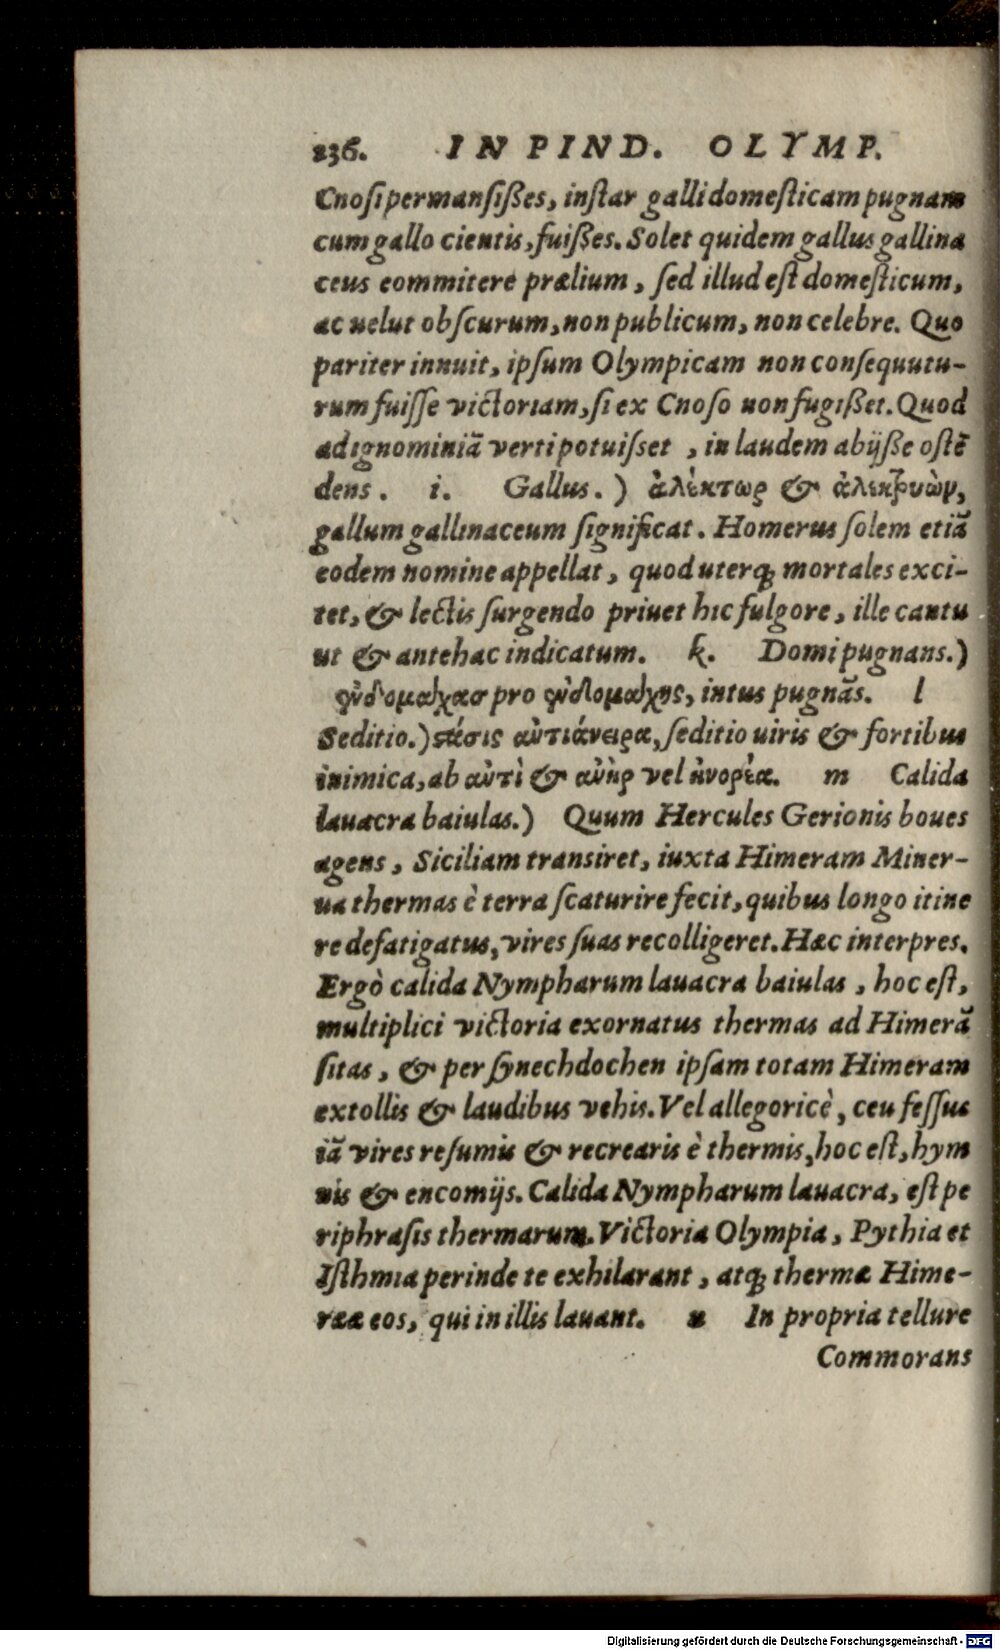 236. IN PIND. OLYMP.
Cnosi permansißes, instar galli domesticam pugnam
cum gallo cientis, fuißes. Solet quidem gallus gallina
ceus eommitere prælium, sed illud est domesticum,
ac uelut obscurum, non publicum, non celebre. Quo
pariter innuit, ipsum Olympicam non consequutu-
rum fuisse victoriam, si ex Cnoso non fugißet. Quod
ad ignominiã verti potuisset, in laudem abijße ostẽ
dens. i. Gallus.) ἀλέκτωρ & ἀλεκτρυὼν,
gallum gallinaceum significat. Homerus solem etiã
eodem nomine appellat, quod uterq; mortales exci-
tet, & lectis surgendo priuet hic fulgore, ille cantu
ut & antehac indicatum. k. Domi pugnans.)
ἐνδομάχασ pro ἐνδομάχης, intus pugnãs. l
Seditio.) στάσις ἀντιάνειρα, seditio uiris & fortibus
inimica, ab ἀντὶ & ἀνὴρ vel ἠνορέα. m Calida
lauacra baiulas.) Quum Hercules Gerionis boues
agens, Siciliam transiret, iuxta Himeram Miner-
ua thermas è terra scaturire fecit, quibus longo itine
re defatigatus, vires suas recolligeret. Hæc interpres.
Ergò calida Nympharum lauacra baiulas, hoc est,
multiplici victoria exornatus thermas ad Himerã
sitas, & per synechdochen ipsam totam Himeram
extollis & laudibus vehis. Vel allegoricè, ceu fessus
iã vires resumis & recrearis è thermis, hoc est, hym
nis & encomijs. Calida Nympharum lauacra, est pe
riphrasis thermarum. Victoria Olympia, Pythia et
Isthmia perinde te exhilarant, atq; thermæ Hime-
rææ eos, qui in illis lauant. n In propria tellure
Commorans
Digitalisierung gefördert durch die Deutsche Forschungsgemeinschaft - DFG